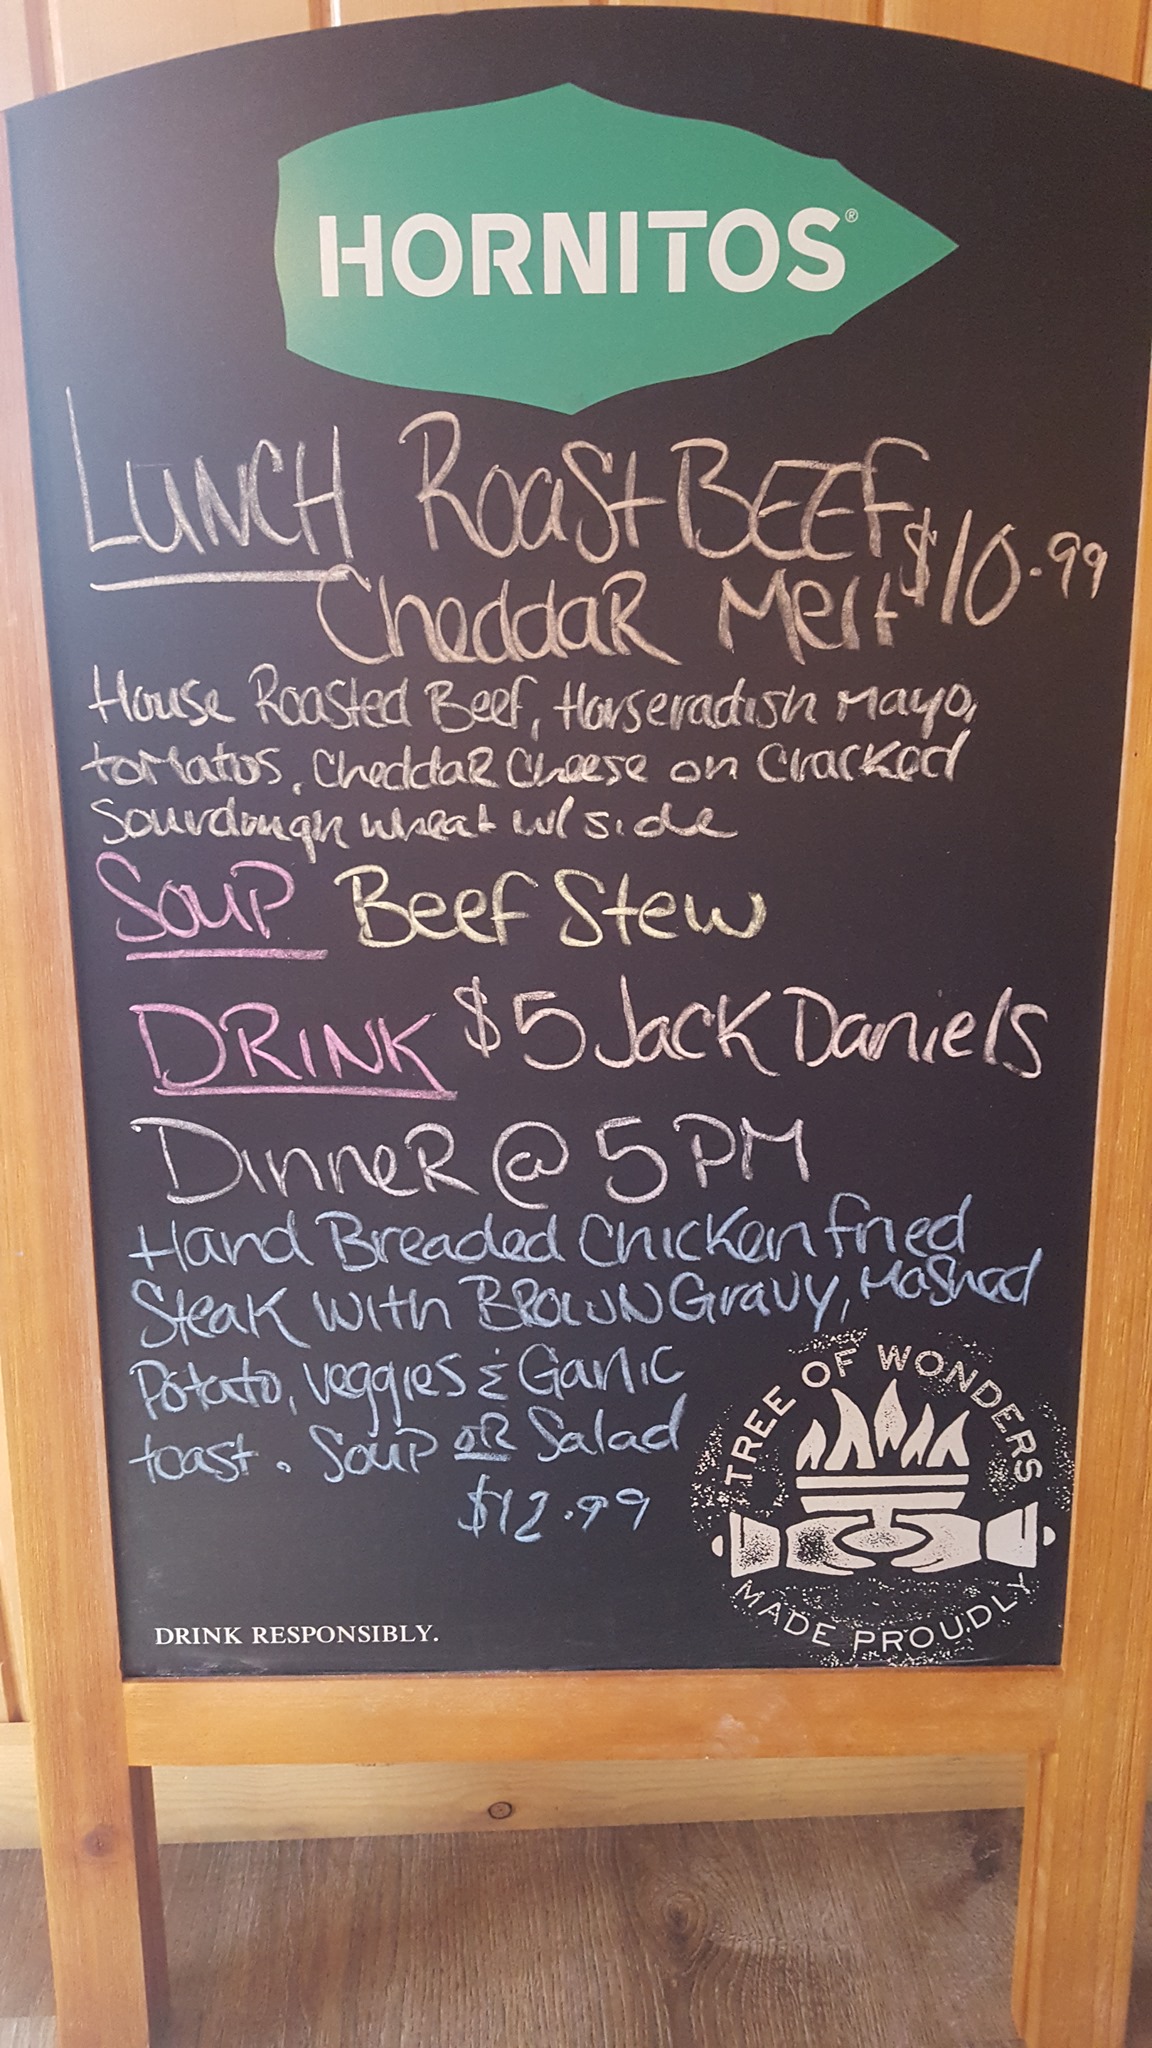 HORNITOS®
LUNCH Roast BEEF
Cheddar Melt $10.99
House Roasted Beef, Horseradish Mayo,
tomatos, Cheddar Cheese on Cracked
Sourdough wheat w/ side
Soup Beef Stew
DRINK $5 Jack Daniels
Dinner @ 5 PM
Hand Breaded Chicken Fried
Steak with BROWN Gravy, Mashed
Potato, veggies & Garlic
toast. Soup OR Salad
$12.99
TREE OF WONDERS
MADE PROUDLY
DRINK RESPONSIBLY.